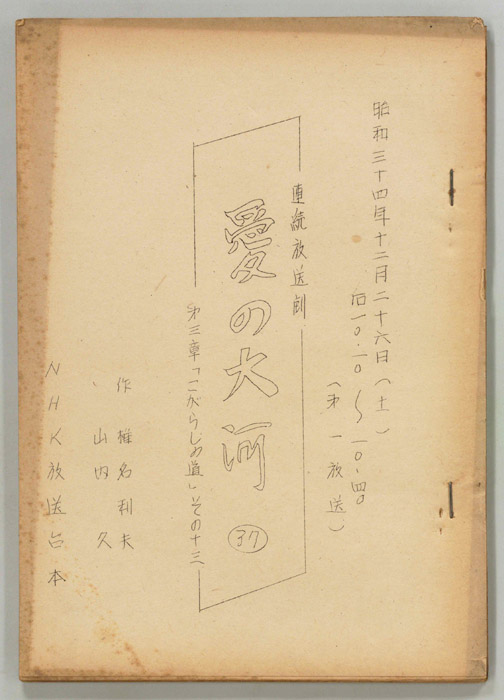 昭和三十四年十二月二十六日（土）
后一〇.一〇〜一〇.四〇
（第一放送）
連続放送劇
愛の大河
37
第三章「こがらしの道」その十三
作 椎名利夫
〃 山内久
NHK放送台本